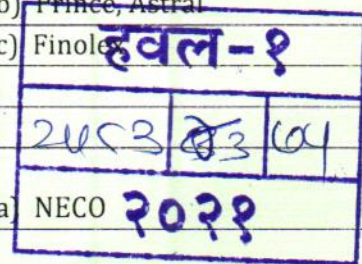 b) Prince, Astral
c) Finolex हवल-१
a) NECO २०२१